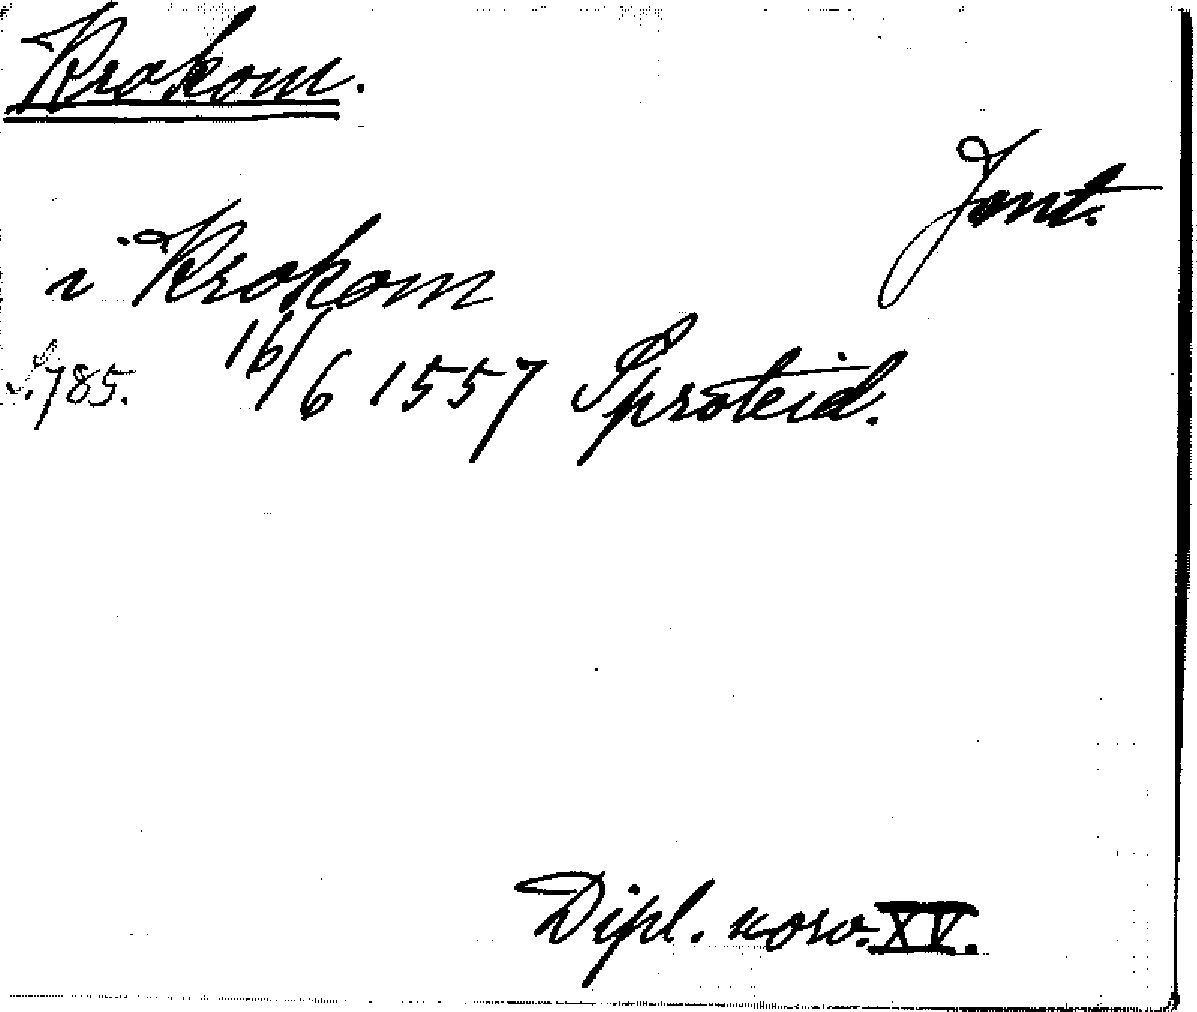 Krokom.
Jmt.
i Krokom
S. 785. 16/6 1557 Sproteid.
Dipl. norv. XV.